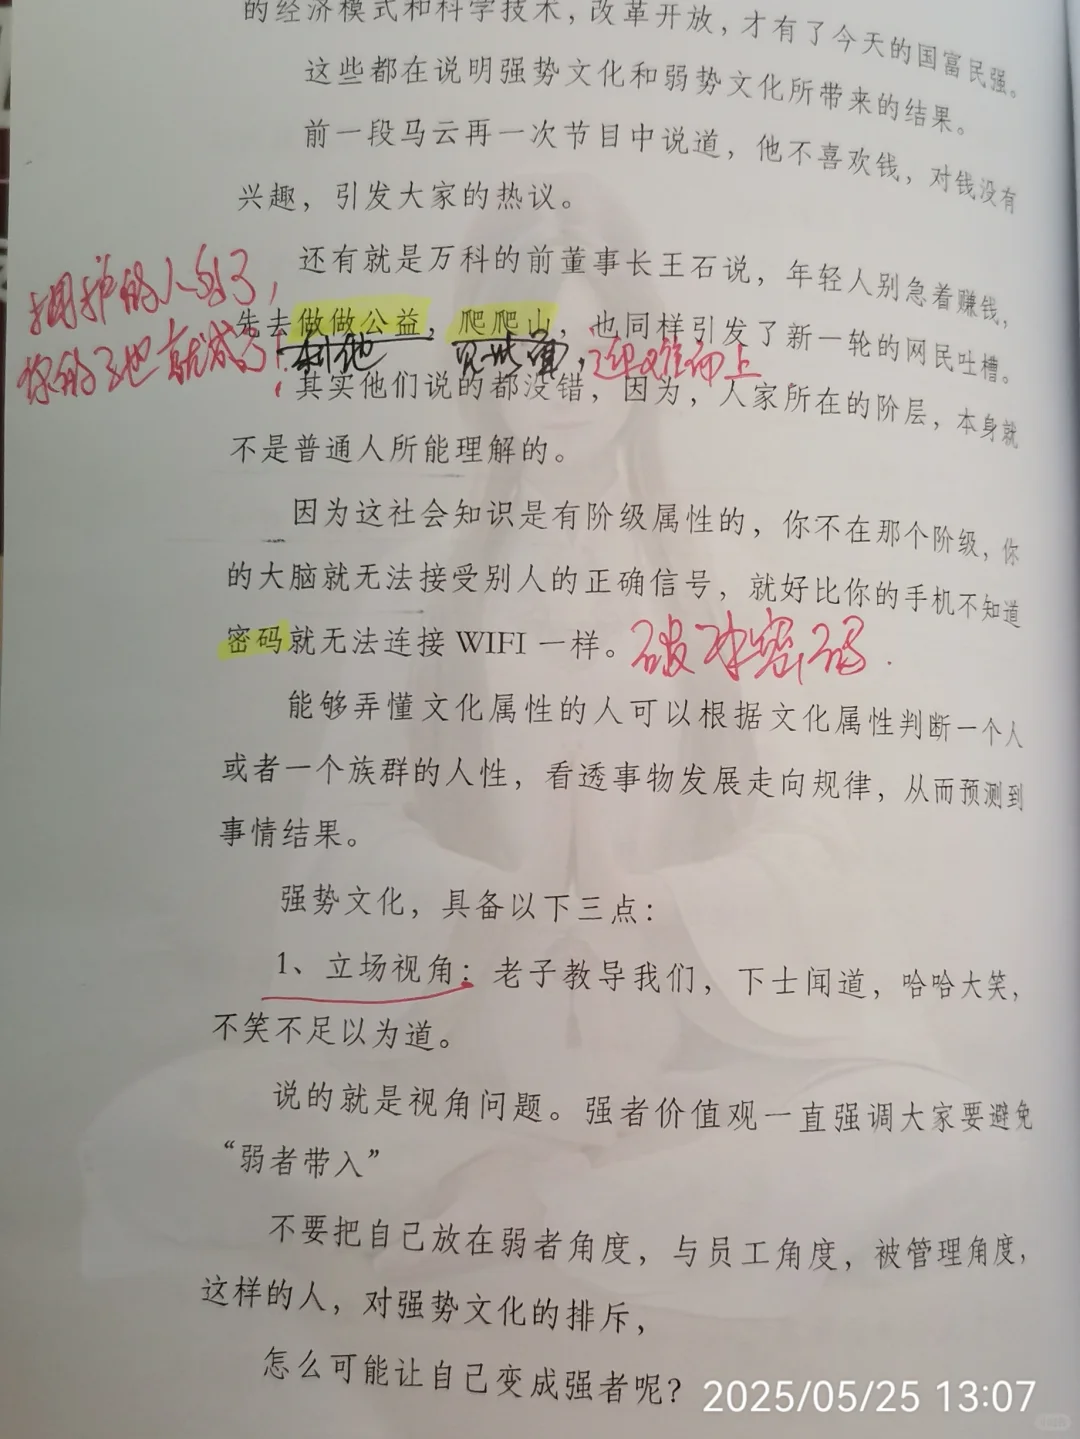 的经济模式和科学技术，改革开放，才有了今天的国富民强。
这些都在说明强势文化和弱势文化所带来的结果。
前一段马云再一次节目中说道，他不喜欢钱，对钱没有
兴趣，引发大家的热议。
还有就是万科的前董事长王石说，年轻人别急着赚钱，
拥护的人多了，
先去做做公益，爬爬山，也同样引发了新一轮的网民吐槽。
你的了也就成了！
利他 见世面，迎难而上
其实他们说的都没错，因为，人家所在的阶层，本身就
不是普通人所能理解的。
因为这社会知识是有阶级属性的，你不在那个阶级，你
的大脑就无法接受别人的正确信号，就好比你的手机不知道
密码就无法连接 WIFI 一样。破译密码.
能够弄懂文化属性的人可以根据文化属性判断一个人
或者一个族群的人性，看透事物发展走向规律，从而预测到
事情结果。
强势文化，具备以下三点：
1、立场视角：老子教导我们，下士闻道，哈哈大笑，
不笑不足以为道。
说的就是视角问题。强者价值观一直强调大家要避免
“弱者带入”
不要把自己放在弱者角度，与员工角度，被管理角度，
这样的人，对强势文化的排斥，
怎么可能让自己变成强者呢？
2025/05/25 13:07